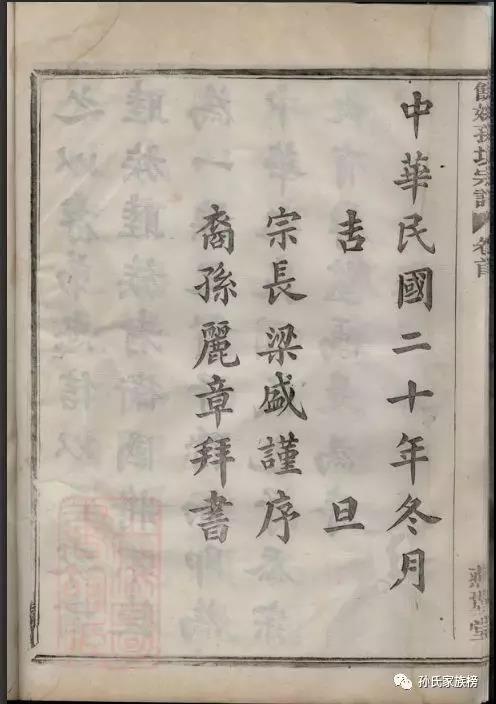 中華民國二十年冬月
吉旦
宗長梁盛謹序
裔孫麗章拜書
餘姚孫境宗譜
卷首
孙氏家族榜